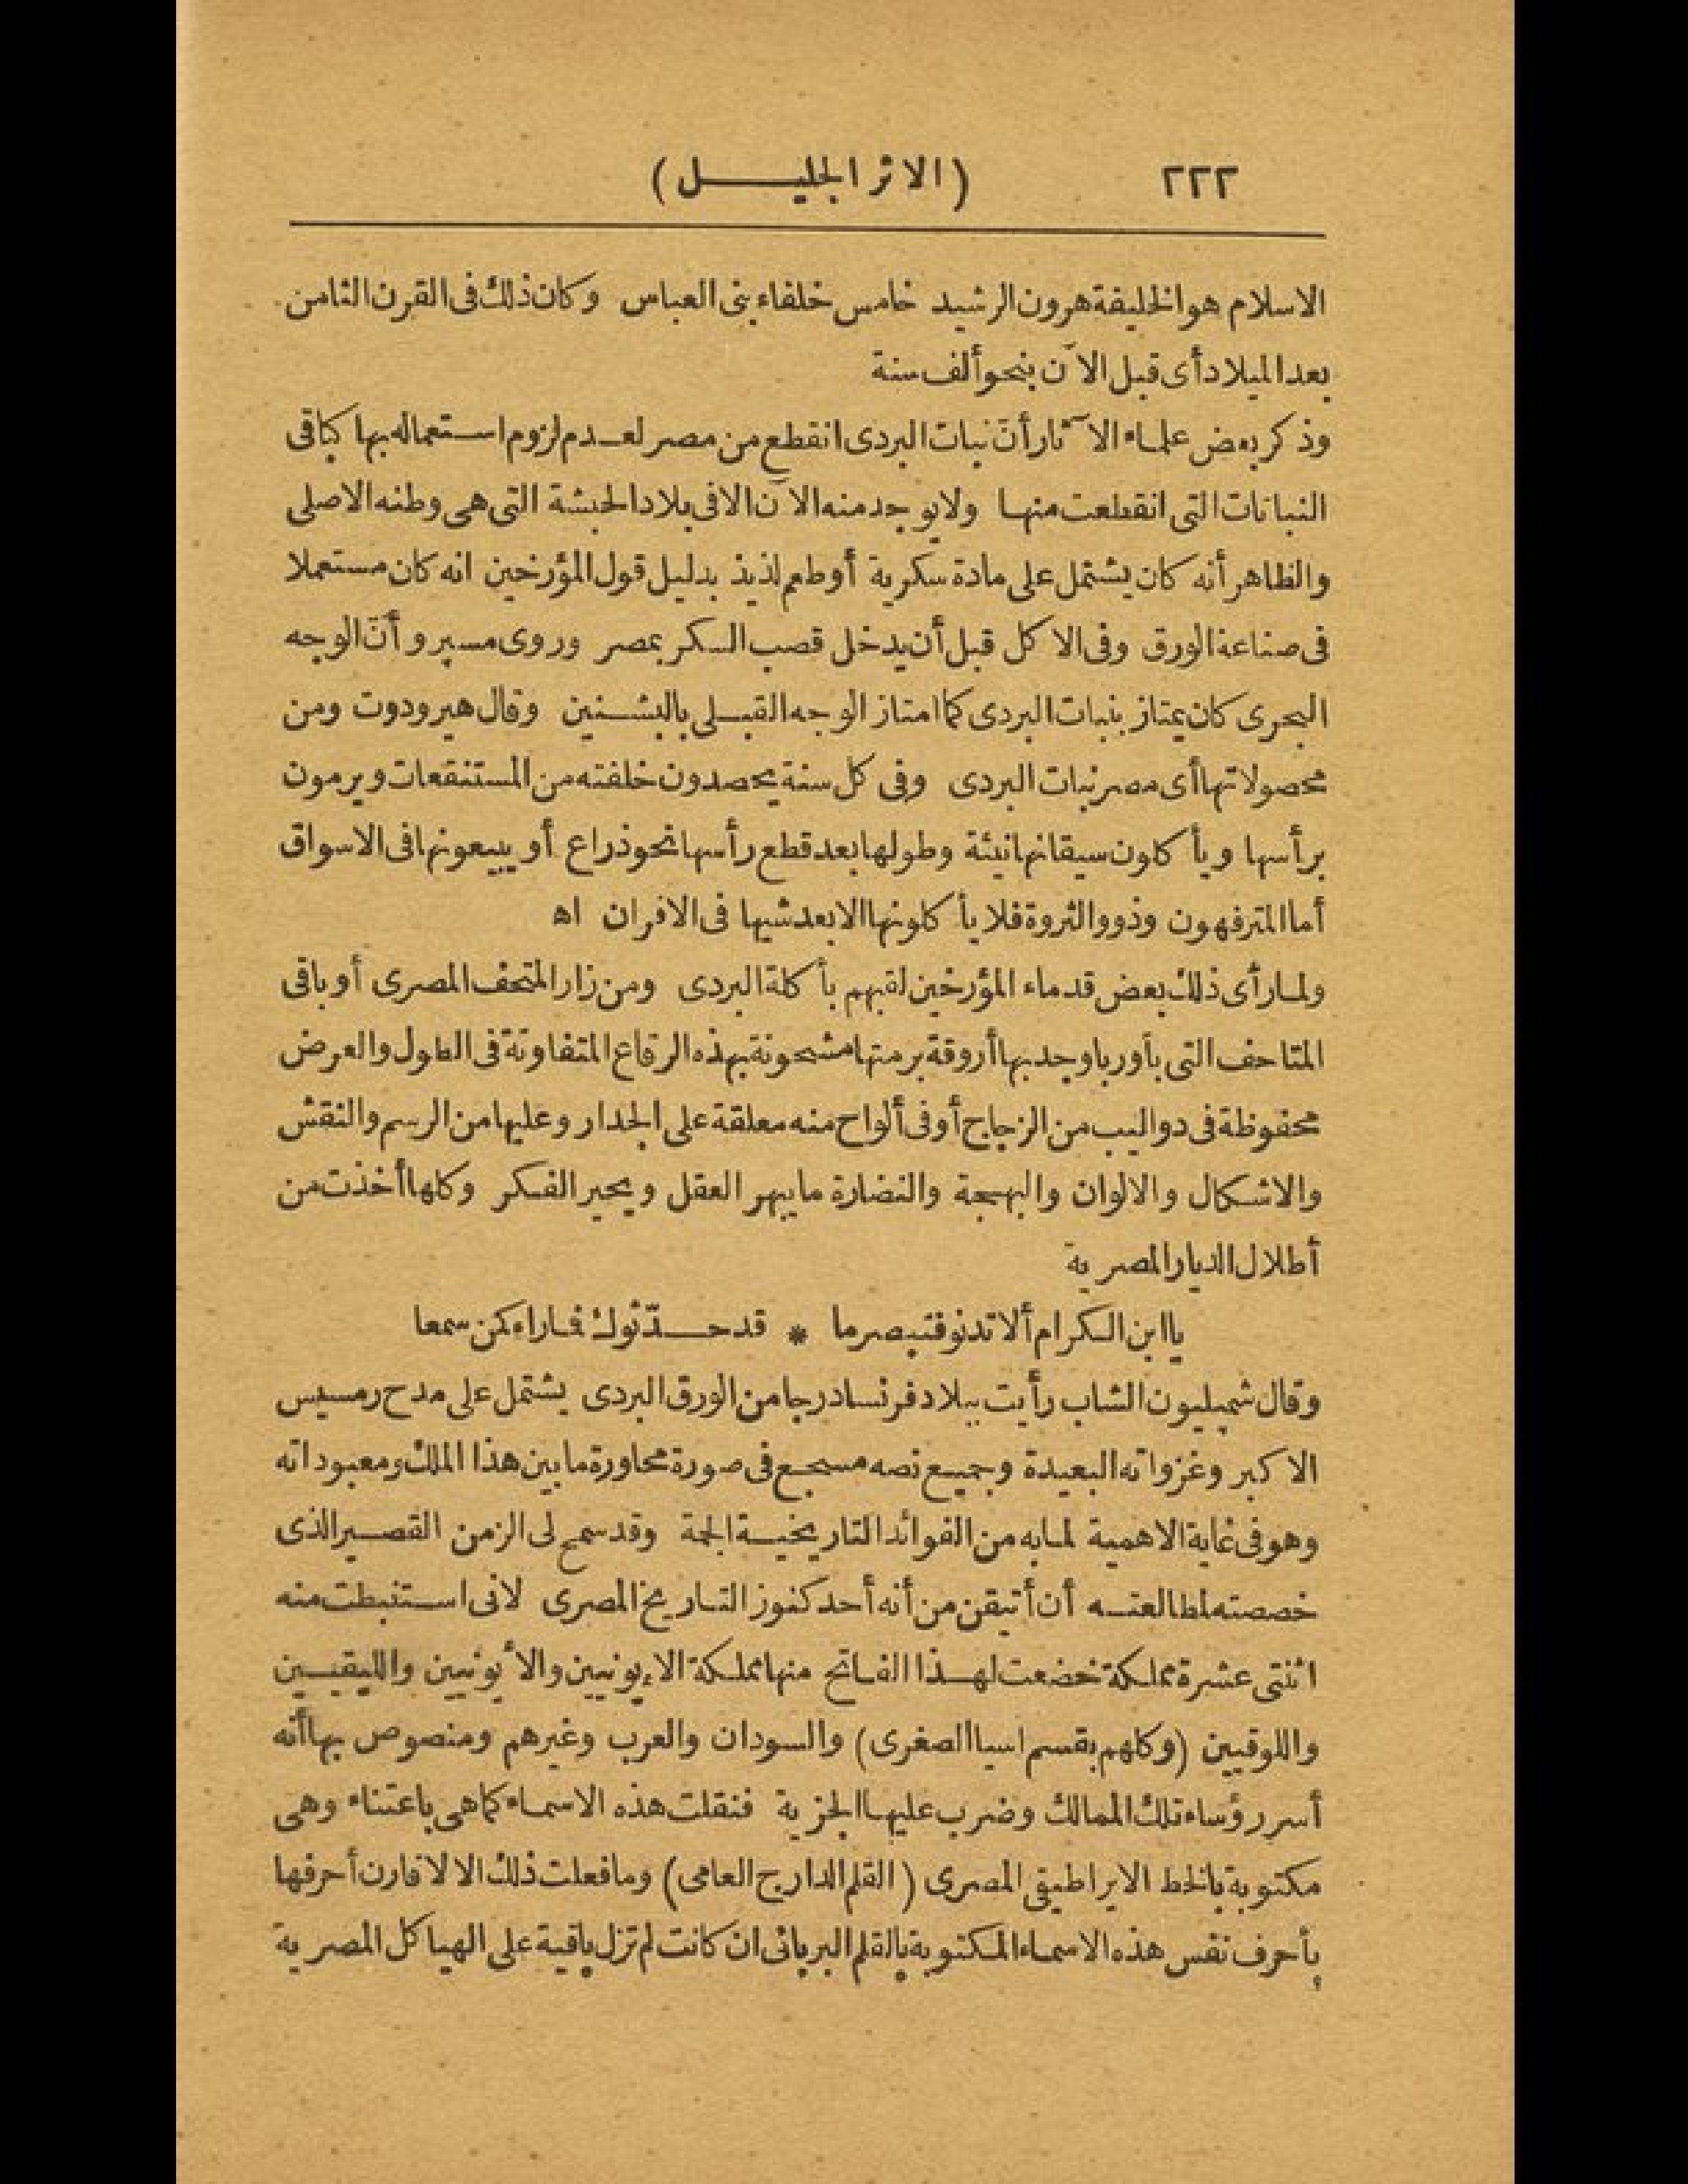 ٢٢٢ (الاثر الجليل)
الاسلام هو الخليفة هرون الرشيد خامس خلفاء بنى العباس وكان ذلك فى القرن الثامن
بعد الميلاد أى قبل الآن بنحو ألف سنة
وذكر بعض علماء الآثار أن نبات البردى انقطع من مصر لعدم لزوم استعماله بها كباقى
النباتات التى انقطعت منها ولا يوجد منه الآن الا فى بلاد الحبشة التى هى وطنه الاصلى
والظاهر أنه كان يشتمل على مادة سكرية أو طعم لذيذ بدليل قول المؤرخين انه كان مستعملا
فى صناعة الورق وفى الاكل قبل أن يدخل قصب السكر بمصر وروى مسپرو أنّ الوجه
البحرى كان يمتاز بنبات البردى كما امتاز الوجه القبلى بالبشنين وقال هيرودوت ومن
محصولاتها أى مصر نبات البردى وفى كل سنة يحصدون خلفته من المستنقعات ويرمون
برأسها ويأكلون سيقانها نيئة وطولها بعد قطع رأسها نحو ذراع أو يبيعونها فى الاسواق
أما المترفهون وذوو الثروة فلا يأكلونها الا بعد شيها فى الافران اه
ولما رأى ذلك بعض قدماء المؤرخين لقبهم بأكلة البردى ومن زار المتحف المصرى أو باقى
المتاحف التى بأوربا وجد بها أروقة برمتها مشحونة بهذه الرقاع المتفاوتة فى الطول والعرض
محفوظة فى دواليب من الزجاج أو فى ألواح منه معلقة على الجدار وعليها من الرسم والنقش
والاشكال والالوان والبهجة والنضارة ما يبهر العقل ويحير الفكر وكلها أخذت من
أطلال الديار المصرية
يا ابن الكرام ألا تدنو فتبصر ما * قد حدّثوك فما راء كمن سمعا
وقال شمپليون الشاب رأيت ببلاد فرنسا درجا من الورق البردى يشتمل على مدح رمسيس
الاكبر وغزواته البعيدة وجميع نصه مسجع فى صورة محاورة ما بين هذا الملك ومعبوداته
وهو فى غاية الاهمية لما به من الفوائد التاريخية الجمة وقد سمح لى الزمن القصير الذى
خصصته لمطالعته أن أتيقن من أنه أحد كنوز التاريخ المصرى لانى استنبطت منه
اثنتى عشرة مملكة خضعت لهذا الفاتح منها مملكة الإيونيين والأيونيين والليقيين
واللوقيين (وكلهم بقسم اسيا الصغرى) والسودان والعرب وغيرهم ومنصوص بها أنه
أسر رؤساء تلك الممالك وضرب عليها الجزية فنقلت هذه الاسماء كما هى باعتناء وهى
مكتوبة بالخط الايراطيقى المصرى (القلم الدارج العامى) وما فعلت ذلك الا لاقارن أحرفها
بأحرف نفس هذه الاسماء المكتوبة بالقلم البربائى ان كانت لم تزل باقية على الهياكل المصرية